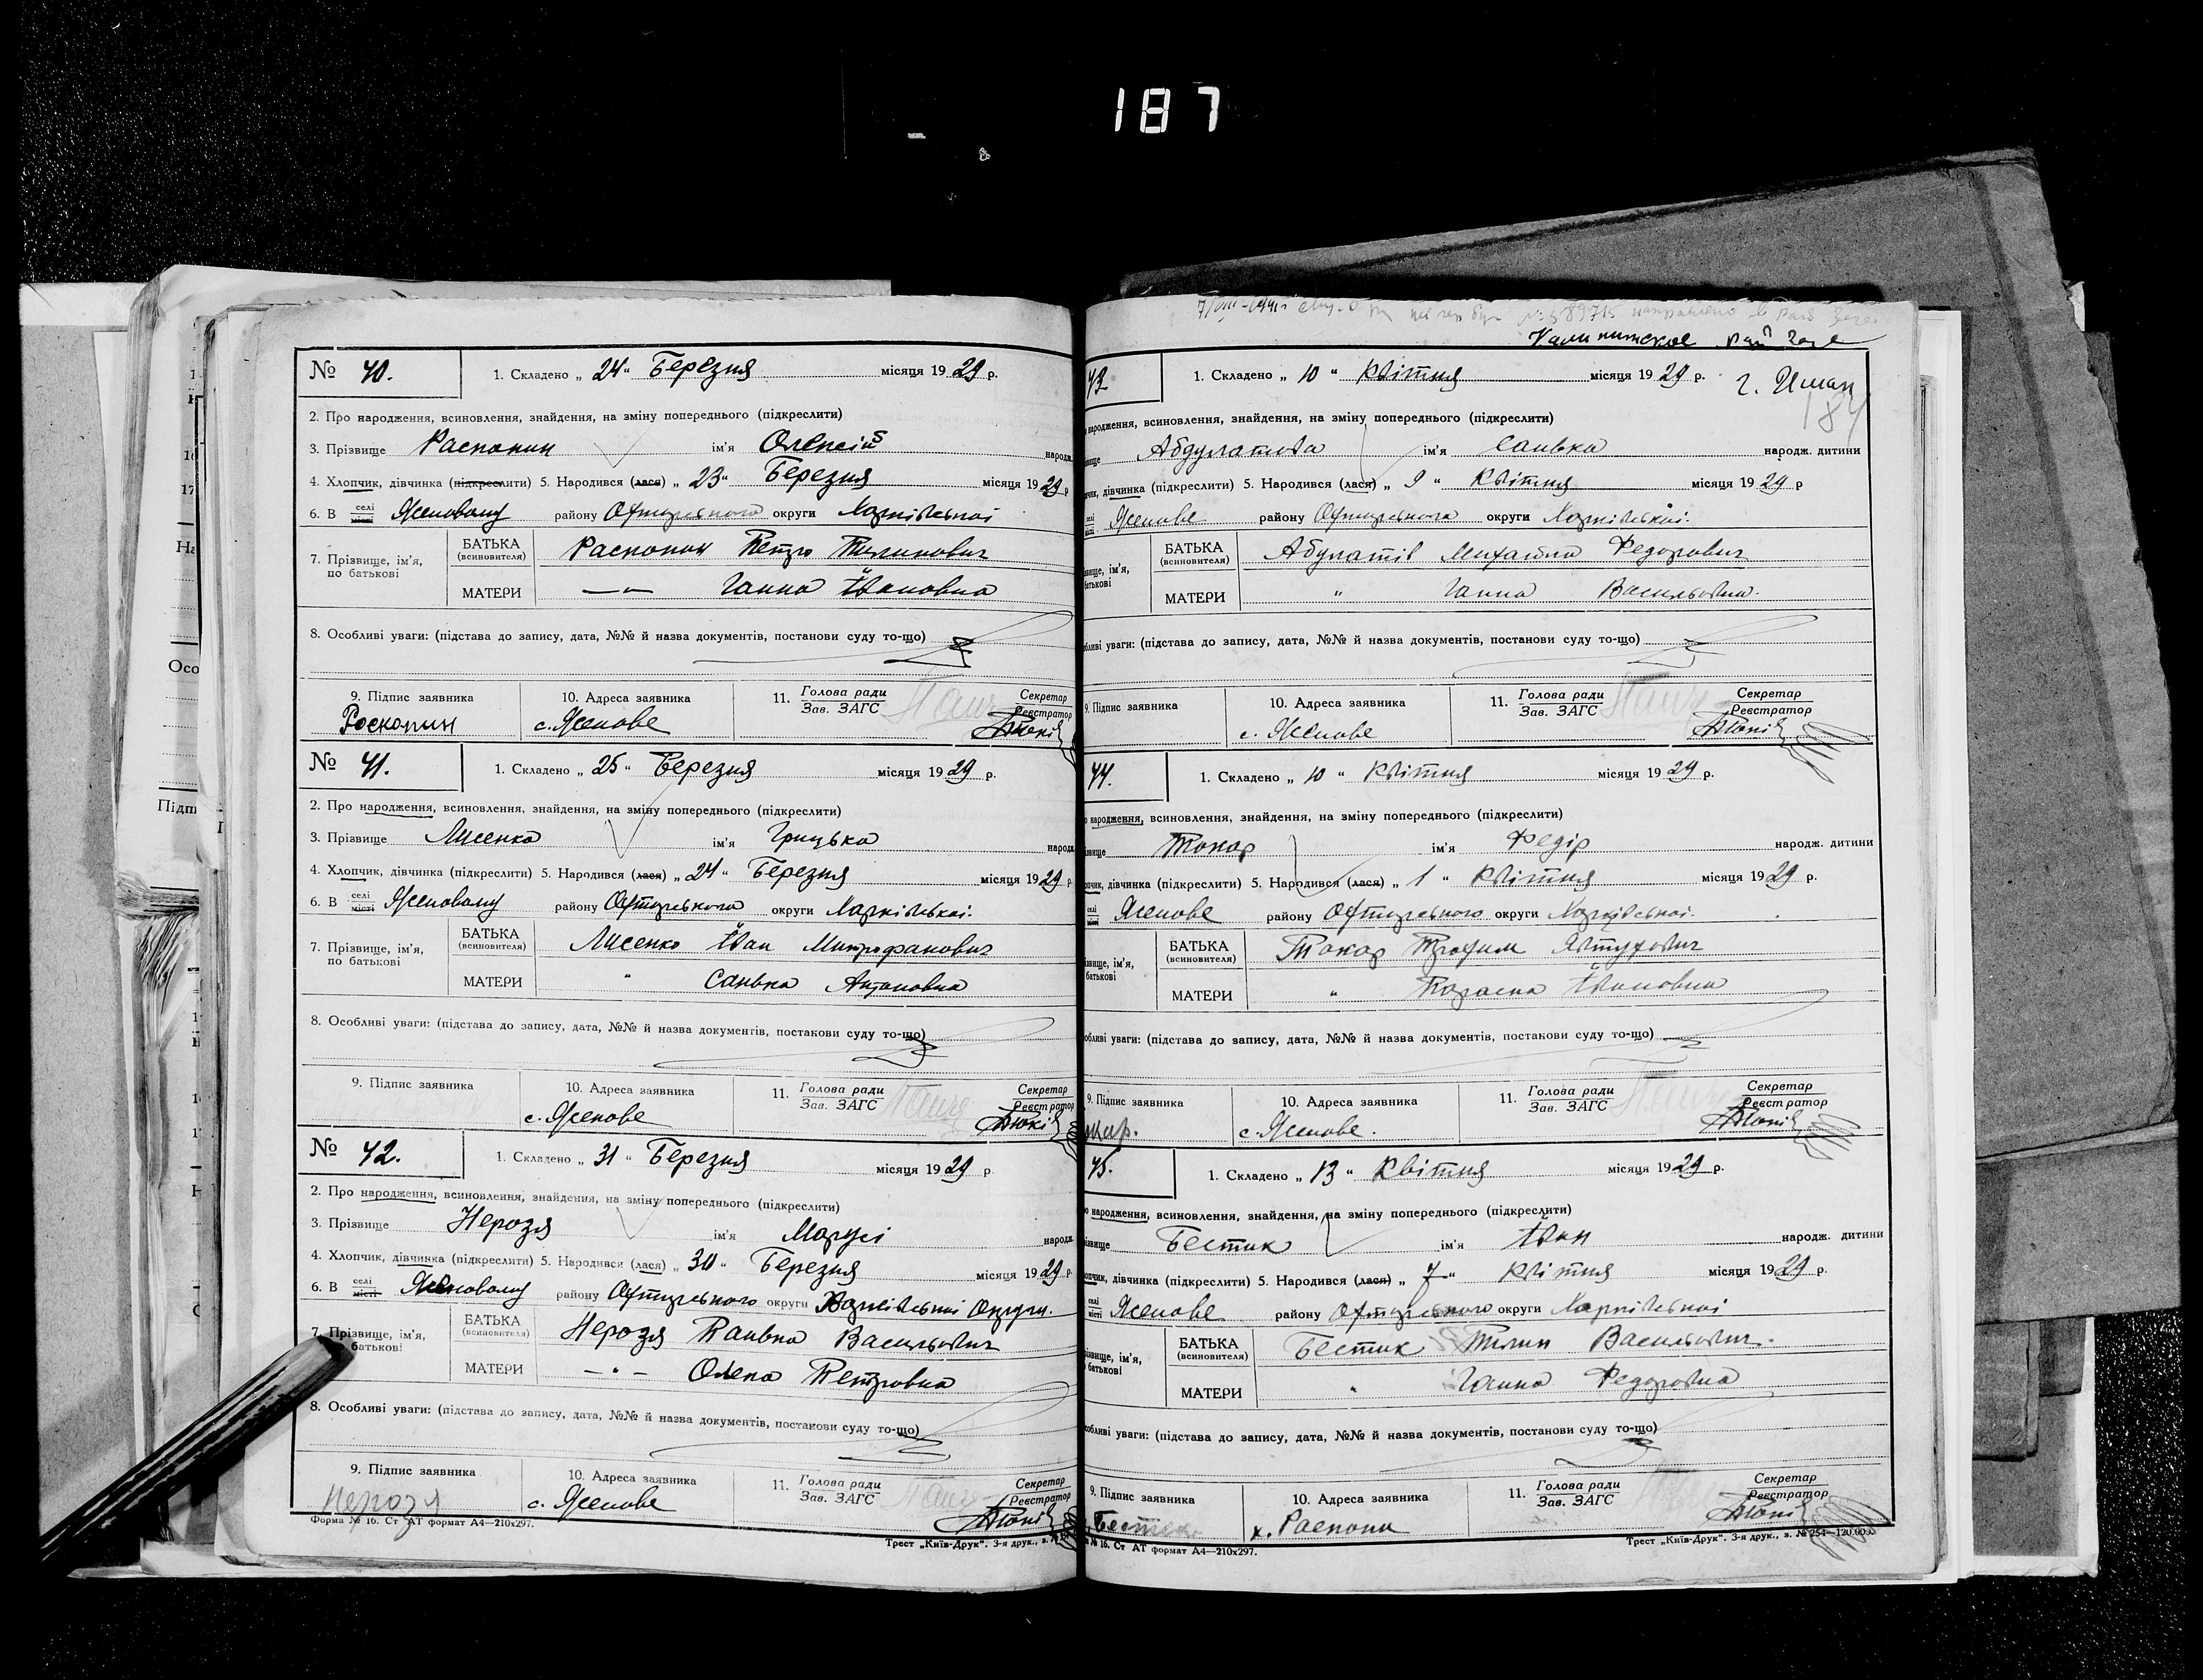 187
№ 40.
1. Складено „ 24 “ Березня місяця 1929 р.
2. Про народження, всиновлення, знайдення, на зміну попереднього (підкреслити)
3. Прізвище Распопин ім'я Олексій народж.
4. Хлопчик, дівчинка (підкреслити) 5. Народився (лася) „ 23 “ Березня місяця 1929 р
6. В селі місті Ясеновому району Охтирського округи Харківської
7. Прізвище, ім'я, по батькові
БАТЬКА (всиновителя) Распопин Петро
МАТЕРИ —„— Ганна Івановна
8. Особливі уваги: (підстава до запису, дата, №№ й назва документів, постанови суду то-що)
9. Підпис заявника 10. Адреса заявника 11. Голова ради Зав. ЗАГС Секретар Реєстратор
Роскопин с. Ясенове
№ 41.
1. Складено „ 25 “ Березня місяця 1929 р.
2. Про народження, всиновлення, знайдення, на зміну попереднього (підкреслити)
3. Прізвище Лисенко ім'я Грицько народж.
4. Хлопчик, дівчинка (підкреслити) 5. Народився (лася) „ 24 “ Березня місяця 1929 р
6. В селі місті Ясеновому району Охтирського округи Харківської.
7. Прізвище, ім'я, по батькові
БАТЬКА (всиновителя) Лисенко Іван Митрофанович
МАТЕРИ „ Санька Антоновна
8. Особливі уваги: (підстава до запису, дата, №№ й назва документів, постанови суду то-що)
9. Підпис заявника 10. Адреса заявника 11. Голова ради Зав. ЗАГС Секретар Реєстратор
с. Ясенове
№ 42.
1. Складено „ 31 “ Березня місяця 1929 р.
2. Про народження, всиновлення, знайдення, на зміну попереднього (підкреслити)
3. Прізвище Нерозя ім'я Марусі народж.
4. Хлопчик, дівчинка (підкреслити) 5. Народився (лася) „ 30 “ Березня місяця 1929 р
6. В селі місті Ясеновому району Охтирського округи Харківської Округи.
7. Прізвище, ім'я, по батькові
БАТЬКА (всиновителя) Нерозя Павло Васильович
МАТЕРИ —„— Олена Петровна
8. Особливі уваги: (підстава до запису, дата, №№ й назва документів, постанови суду то-що)
9. Підпис заявника 10. Адреса заявника 11. Голова ради Зав. ЗАГС Секретар Реєстратор
Нерозя с. Ясенове
Форма № 16. Ст АТ формат А4—210x297. Трест „Київ-Друк“. 3-я друк., з.
Калининское
г. Иман
184
43.
1. Складено „ 10 “ Квітня місяця 1929 р.
народження, всиновлення, знайдення, на зміну попереднього (підкреслити)
Абдулатова ім'я Санька народж. дитини
дівчинка (підкреслити) 5. Народився (лася) „ 9 “ Квітня місяця 1929 р
селі місті Ясенове району Охтирського округи Харківської.
БАТЬКА (всиновителя) Абулатів Михайло Федорович
МАТЕРИ „ Ганна Васильовна.
уваги: (підстава до запису, дата, №№ й назва документів, постанови суду то-що)
9. Підпис заявника 10. Адреса заявника 11. Голова ради Зав. ЗАГС Секретар Реєстратор
с. Ясенове
44.
1. Складено „ 10 “ Квітня місяця 1929 р.
народження, всиновлення, знайдення, на зміну попереднього (підкреслити)
Токар ім'я Федір народж. дитини
дівчинка (підкреслити) 5. Народився (лася) „ 1 “ Квітня місяця 1929 р.
селі місті Ясенове району Охтирського округи Харківської.
БАТЬКА (всиновителя) Токар Трохим Явтухович
МАТЕРИ „ Параска Івановна
уваги: (підстава до запису, дата, №№ й назва документів, постанови суду то-що)
9. Підпис заявника 10. Адреса заявника 11. Голова ради Зав. ЗАГС Секретар Реєстратор
с. Ясенове.
45.
1. Складено „ 13 “ Квітня місяця 1929 р.
народження, всиновлення, знайдення, на зміну попереднього (підкреслити)
Бестик ім'я Іван народж. дитини
дівчинка (підкреслити) 5. Народився (лася) „ 7 “ Квітня місяця 1929 р.
селі місті Ясенове району Охтирського округи Харківської
БАТЬКА (всиновителя) Бестик Васильович.
МАТЕРИ „ Ганна Федоровна
уваги: (підстава до запису, дата, №№ й назва документів, постанови суду то-що)
9. Підпис заявника 10. Адреса заявника 11. Голова ради Зав. ЗАГС Секретар Реєстратор
Бестик х. Распопи
№ 16. Ст АТ формат А4—210x297. Трест „Київ-Друк“. 3-я друк., з. № 254—120.000